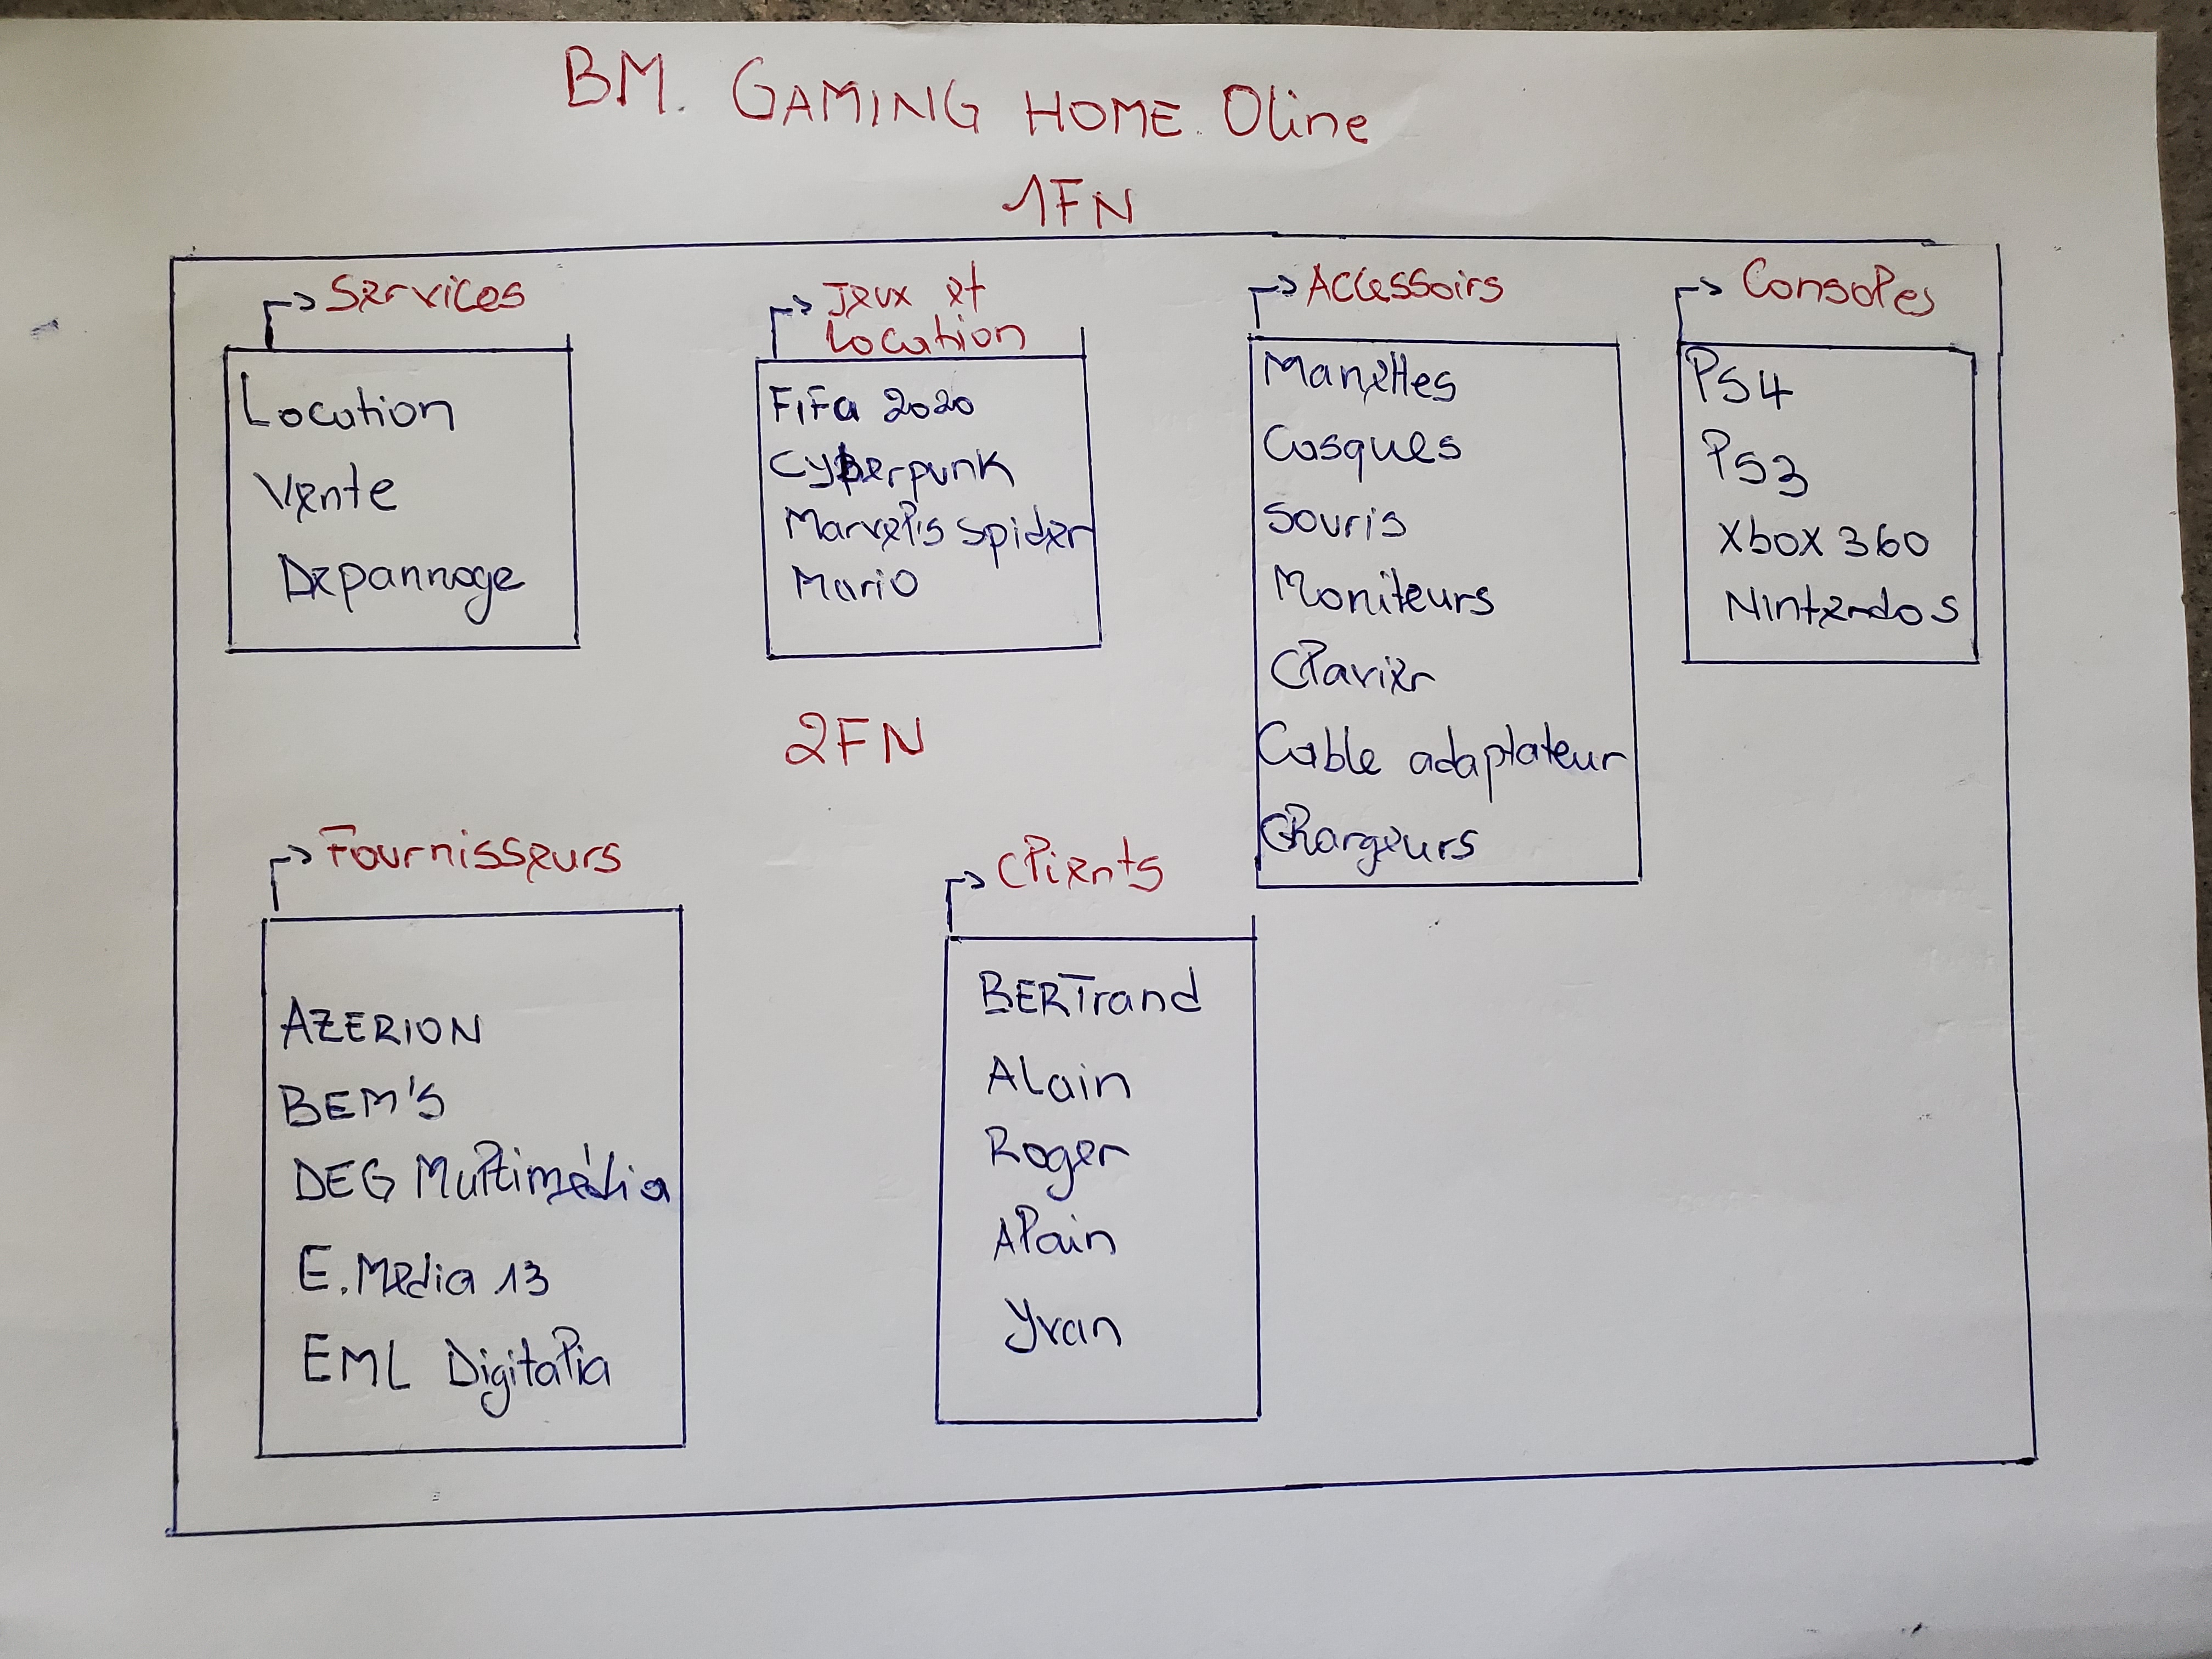 BM. GAMING HOME. Oline
1FN
Services
Location
Vente
Depannage
Jeux et
Location
FiFa 2020
Cyberpunk
Marvel's Spider
Mario
Accessoirs
Manettes
Casques
Souris
Moniteurs
Clavier
Cable adaptateur
Chargeurs
Consoles
PS4
PS3
Xbox 360
Nintendos
2FN
Fournisseurs
AZERION
BEM'S
DEG Multimédia
E.Media 13
EML Digitalia
Clients
BERTrand
ALain
Roger
Alain
Yvan